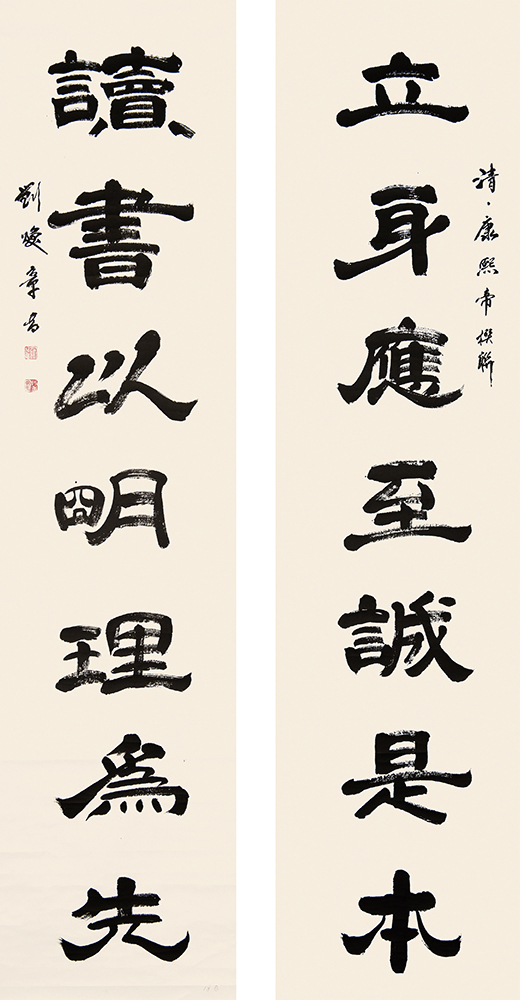 清、康熙帝撰聯
立身應至誠是本
讀書以明理爲先
劉煥章書